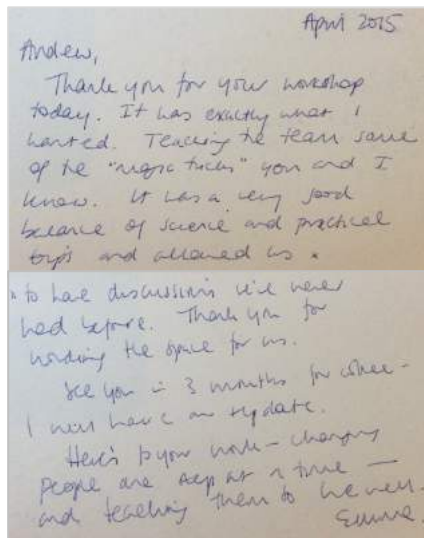 April 2015
Andrew,
Thank you for your workshop
today. It was exactly what I
wanted. Teaching the team some
of the "magic tricks" you and I
know. It was a very good
balance of science and practical
tips and allowed us *
* to have discussions we've never
had before. Thank you for
holding the space for us.
See you in 3 months for coffee -
I will have an update.
Here's to your work - changing
people one step at a time -
and teaching them to live well.
Emma.